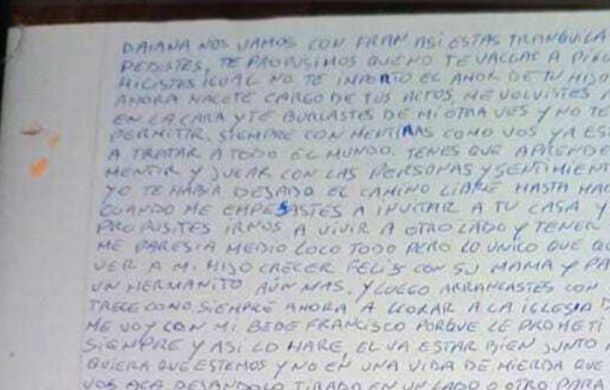 DAIANA NOS VAMOS CON FRAN ASI ESTAS TRANQUILA
PEDISTES, TE PROPUSIMOS QUE NO TE VALLAS A
HICISTES IGUAL NO TE INPORTO EL AMOR DE TU HIJO
AHORA HACETE CARGO DE TUS ACTOS, ME VOLVISTES A
EN LA CARA Y TE BURLASTES DE MI OTRA VES Y NO TE
PERMITIR, SIEMPRE CON MENTIRAS COMO VOS Y A
A TRATAR A TODO EL MUNDO. TENES QUE APRENDE
MENTIR Y JUGAR CON LAS PERSONAS Y SENTIMIEN
YO TE HABIA DEJADO EL CAMINO LIBRE HASTA
CUANDO ME EMPESASTES A INVITAR A TU CASA Y
PROPUSITES IRNOS A VIVIR A OTRO LADO Y TENER
ME PARESIA MEDIO LOCO TODO PERO LO UNICO QUE
VER A MI HIJO CRECER FELIS CON SU MAMA Y PA
UN HERMANITO AÚN MAS. Y LUEGO ARRANCASTES CON
TRECE COMO SIEMPRE AHORA A LLORAR A LA IGLESIA
ME VOY CON MI BEBE FRANCISCO PORQUE LE PROMETI
SIEMPRE Y ASI LO HARE, EL VA ESTAR BIEN JUNTO A
QUIERA QUE ESTEMOS Y NO EN UNA VIDA DE MIERDA QUE
VOS ACA DEJANDOLO TIRADO EN UN LADO O OTRO